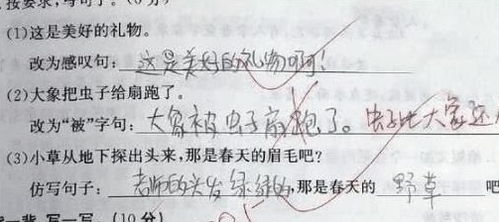 按要求，写句子。(6分)
(1)这是美好的礼物。
改为感叹句：这是美好的礼物啊！
(2)大象把虫子给扇跑了。
改为“被”字句：大象被虫子扇跑了。虫子比大象还
(3)小草从地下探出头来，那是春天的眉毛吧？
仿写句子：老师的头发绿绿的，那是春天的 野草 吧
写一写。(10分)